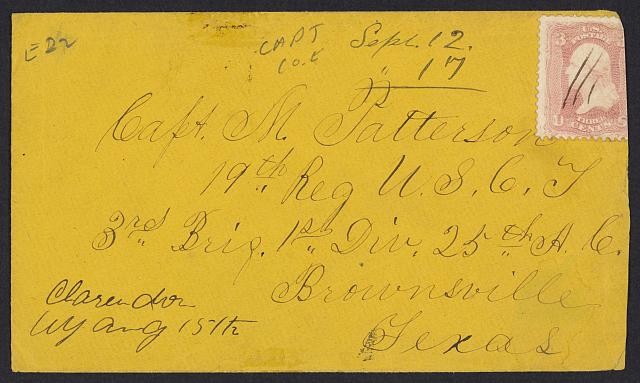 E 22
CAPT
CO. E
Sept. 12.
" 17
U.S. POSTAGE
3 3
THREE CENTS
Capt. M. Patterson
19th Reg U. S. C. T
3rd Brig. 1st Div. 25th A. C.
Brownsville
Texas
Clarendon
NY Aug 15th